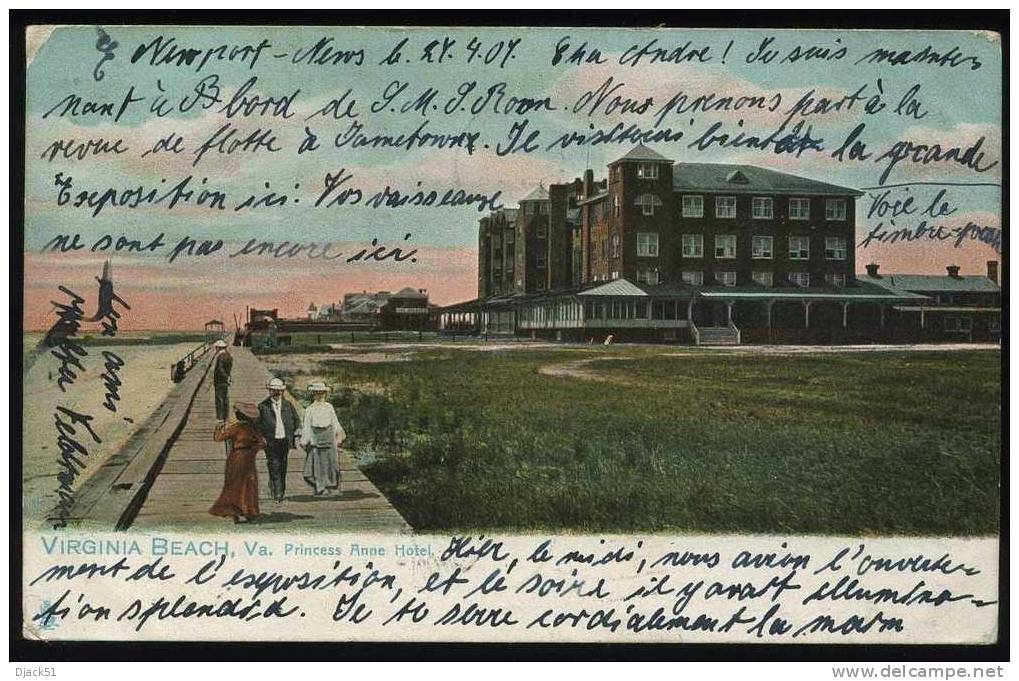 Newport-News b. 27.4.07. Cher André! Je suis mainte-
nant à Bbord de S.M.S. Roon. Nous prenons part à la
revue de flotte à Jametown. Je visiterai bientôt la grande
Exeposition ici. Vos vaisseaux
ne sont pas encore ici.
Voie le
timbre-poste
Ton ami
VIRGINIA BEACH, Va. Princess Anne Hotel.
Hier, le midi, nous avion l'ouverte-
ment de l'exeposition, et le soire il y avait illumina-
tion splendid. Je te serre cordialement la main
Djack51
www.delcampe.net